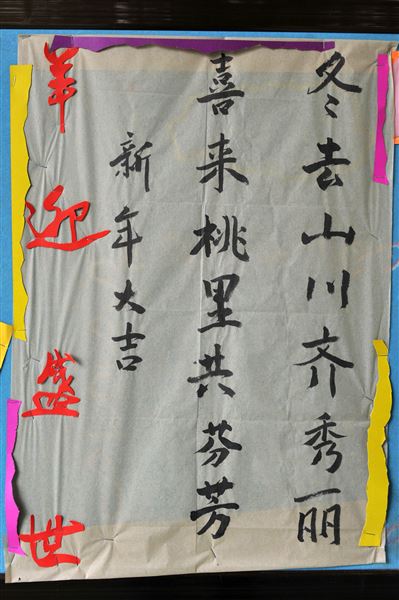 冬去山川齐秀丽
喜来桃里共芬芳
新年大吉
羊迎盛世